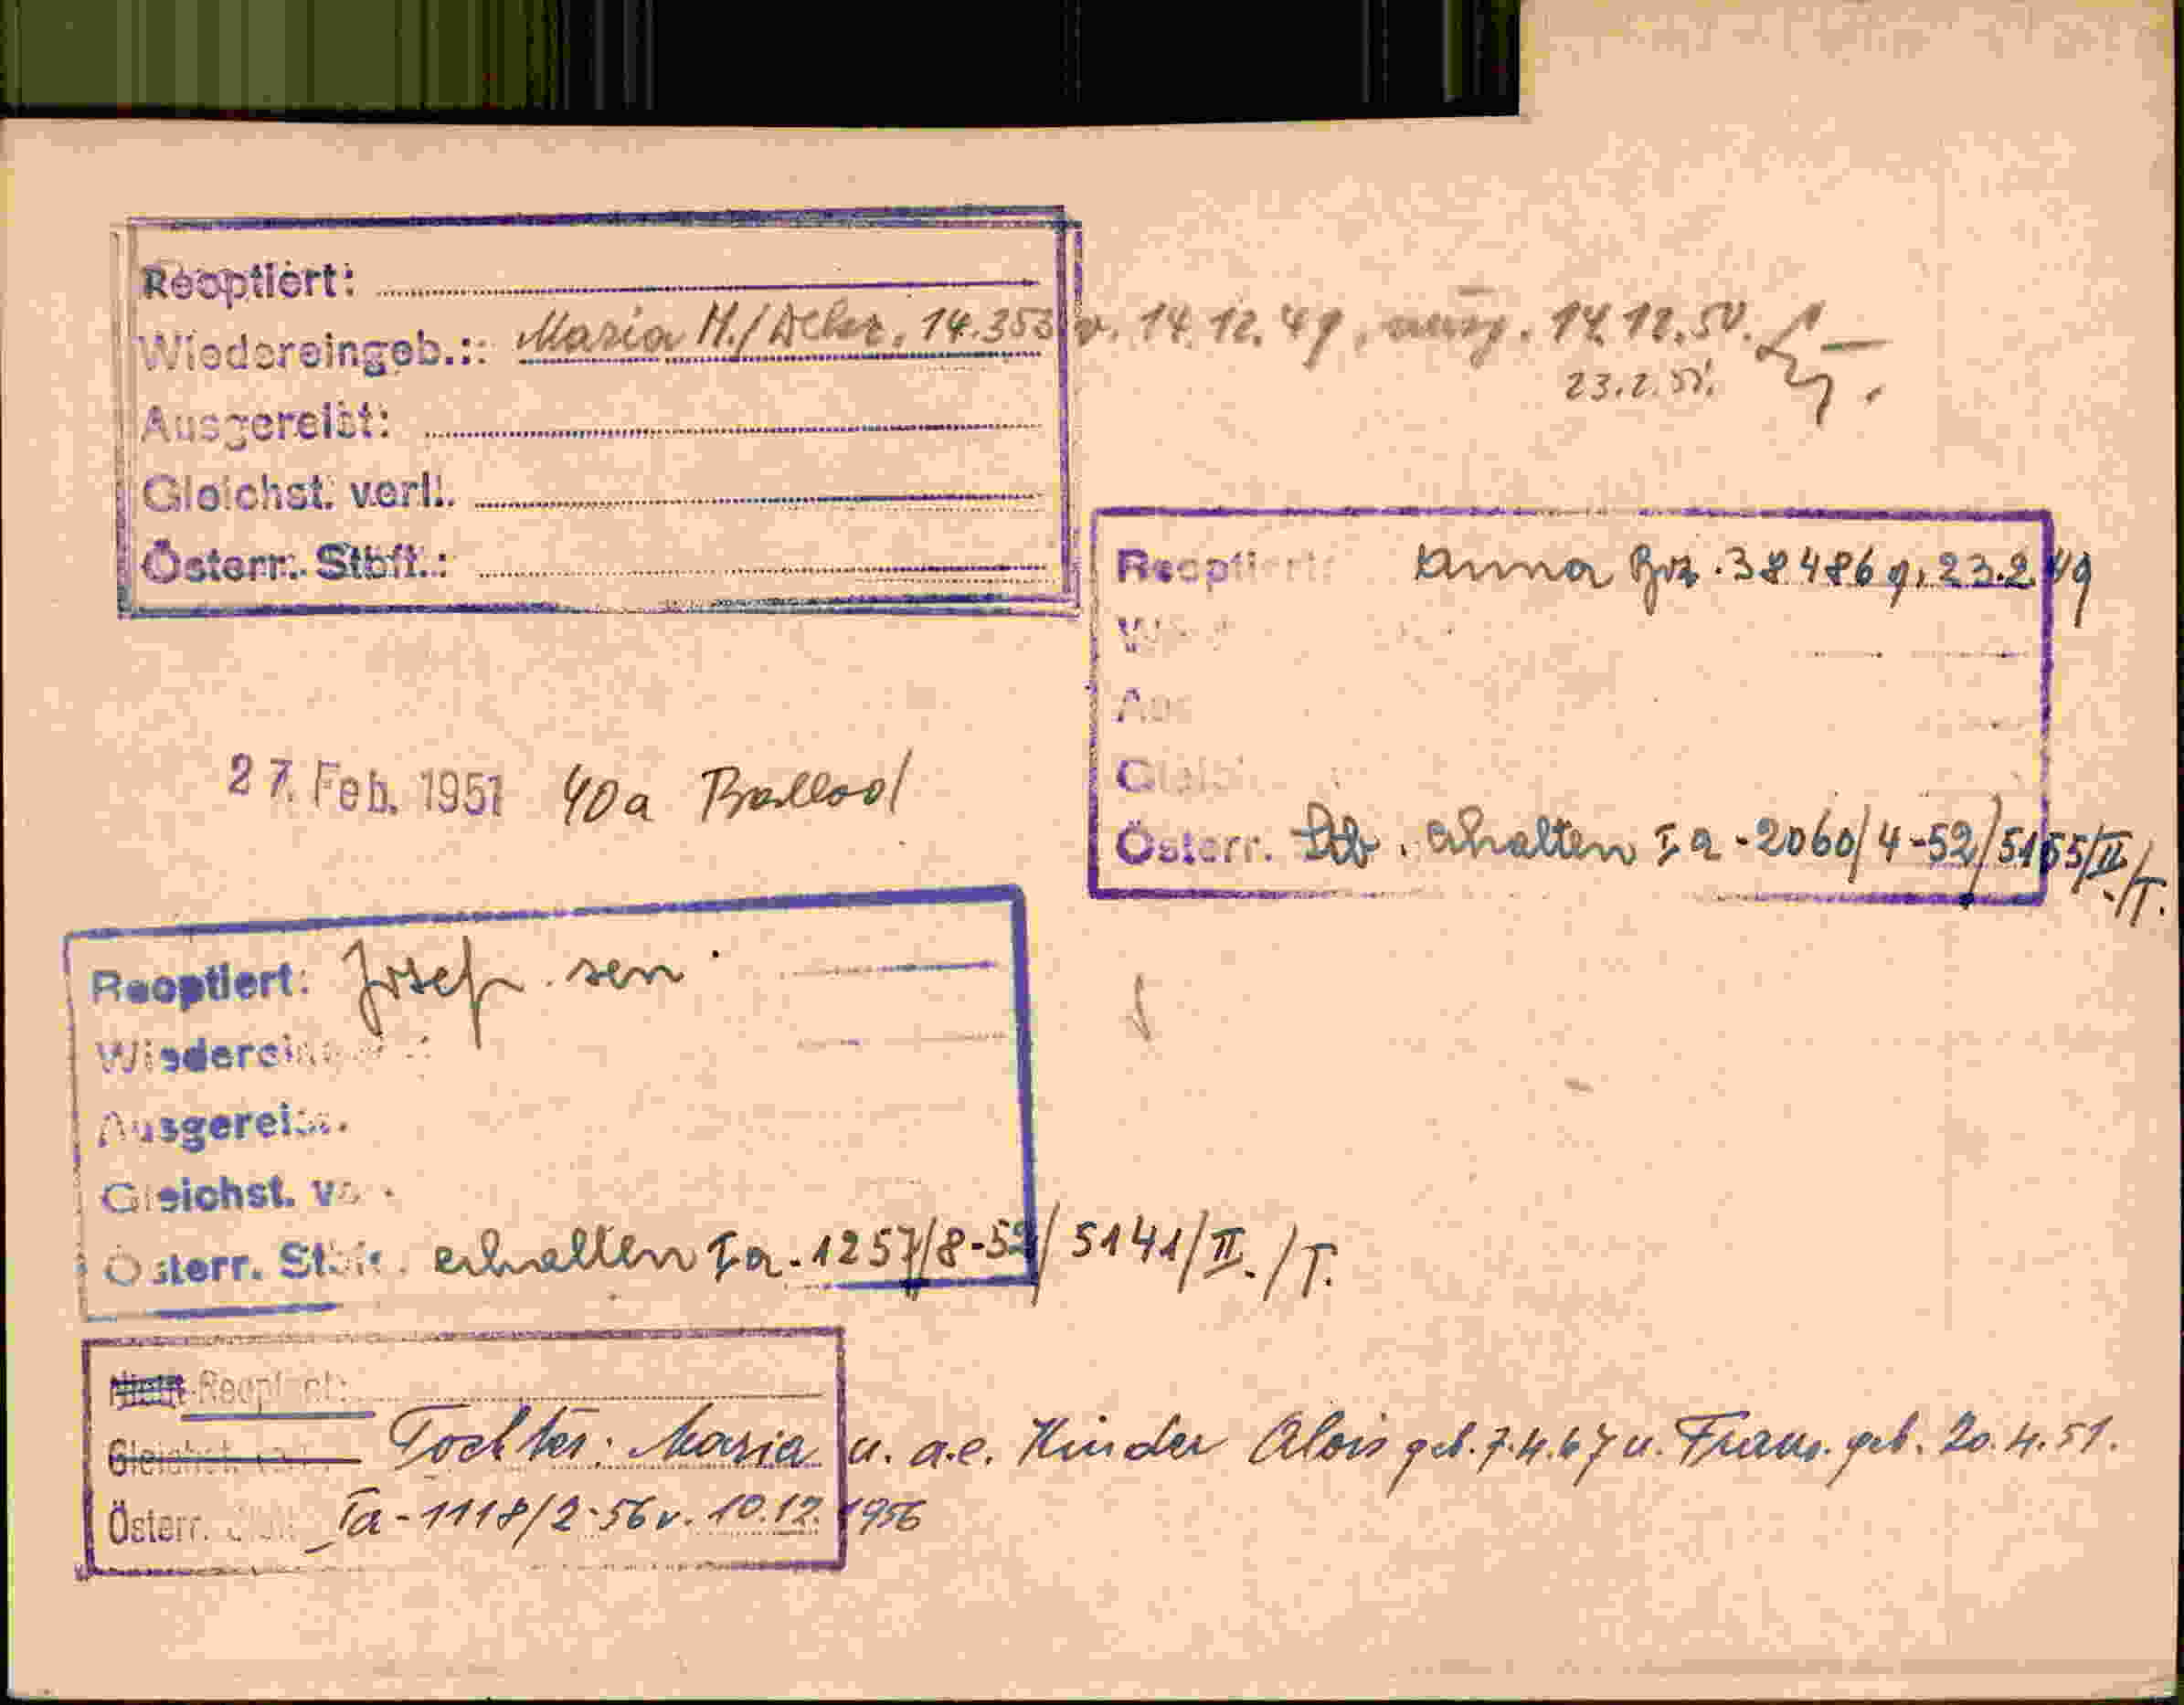 Reoptiert:
Wiedereingeb.: Maria M./Dekr. 14.353 v. 14.12.49, 14.12.50.
23.2.51.
Ausgereist:
Gleichst. verl.
Österr. Stbft.:
Reoptiert: Anna 38486 g. 23.2.49
Österr. Stb. erhalten Ia-2060/4-52/5155/II./T.
27. Feb. 1951 40a
Reoptiert: Josef sen
Ausgereist.
Gleichst.
Österr. erhalten Ia-1257/8-52/5141/II./T.
Nicht Reoptiert:
Gleichst. Tochter: Maria u. a.e. Kinder Alois geb. 7.4.47 u. Franz. geb. 20.4.51.
Österr. Ia-1118/2-56 v. 10.12.1956